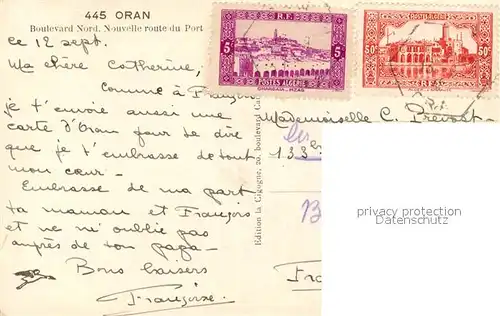 445 ORAN
Boulevard Nord. Nouvelle route du Port
ce 12 sept.
Ma chère Catherine,
Comme à François
je t'envoie aussi une
carte d'Oran pour te dire
que je t'embrasse de tout
mon cœur -
Embrasse de ma part
ta maman et François
et ne m'oublie pas
auprès de ton papa -
Bons baisers
Françoise.
Edition la Cigogne, 20, boulevard
R.F.
5c
POSTES ALGERIE
POSTES ALGERIE
50c
50c
R.F.
Mademoiselle C. Prévost
133
privacy protection
Datenschutz